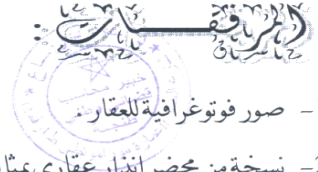 المرفقات :
- صور فوتوغرافية للعقار .
- نسخة من محضر انذار عقاري